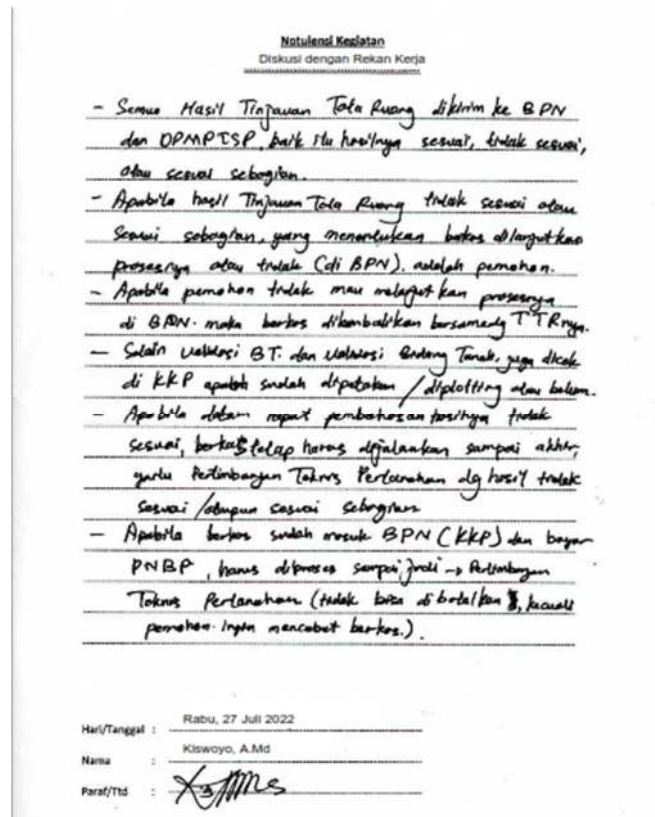 Notulensi Kegiatan
Diskusi dengan Rekan Kerja
- Semua Hasil Tinjauan Tata Ruang dikirim ke BPN
dan DPMPTSP, baik itu hasilnya sesuai, tidak sesuai,
atau sesuai sebagian.
- Apabila hasil Tinjauan Tata Ruang tidak sesuai atau
sesuai sebagian, yang menentukan berkas dilanjutkan
prosesnya atau tidak (di BPN). adalah pemohon.
- Apabila pemohon tidak mau melanjutkan prosesnya
di BPN. maka berkas dikembalikan bersama dg TTRnya.
- Selain Validasi BT. dan Validasi Bidang Tanah, juga dicek
di KKP apakah sudah dipetakan / diplotting atau belum.
- Apabila dalam rapat pembahasan hasilnya tidak
sesuai, berkas tetap harus dijalankan sampai akhir,
yaitu Pertimbangan Teknis Pertanahan dg hasil tidak
sesuai / ataupun sesuai sebagian
- Apabila berkas sudah masuk BPN (KKP) dan bayar
PNBP, harus diproses sampai jadi -> Pertimbangan
Teknis Pertanahan (tidak bisa dibatalkan, kecuali
pemohon ingin mencabut berkas.).
Hari/Tanggal : Rabu, 27 Juli 2022
Nama : Kiswoyo, A.Md
Paraf/Ttd :